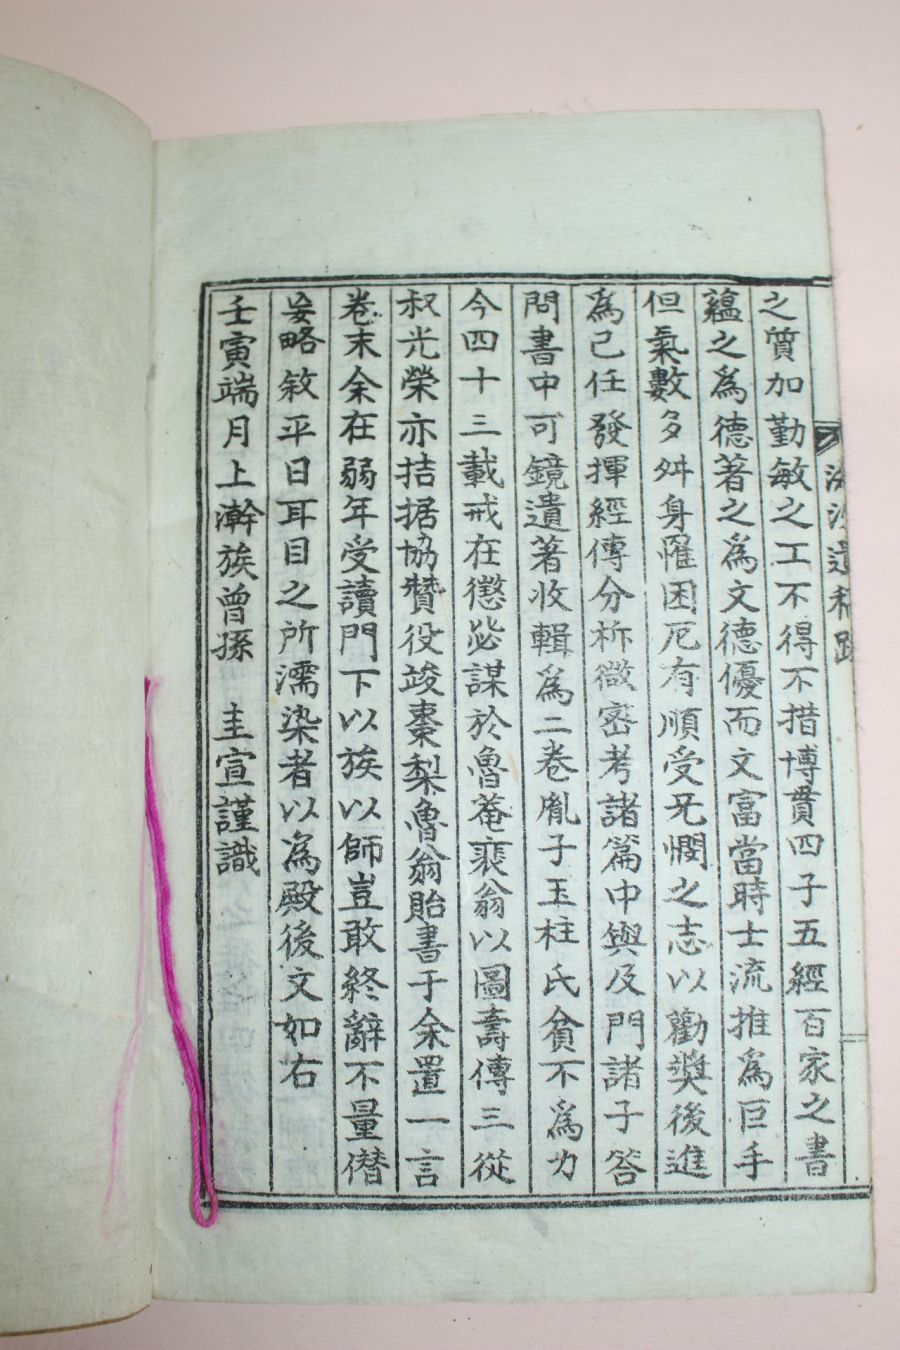 遺稿跋
之質加勤敏之工不得不措博貫四子五經百家之書
蘊之爲德著之爲文德優而文富當時士流推爲巨手
但氣數多舛身罹困厄有順受旡憫之志以勸奬後進
爲己任發揮經傳分柝微密考諸篇中與及門諸子答
問書中可鏡遺著收輯爲二卷胤子玉柱氏貧不爲力
今四十三載戒在懲毖謀於魯菴裵翁以圖壽傳三從
叔光榮亦拮据協贊役竣棗梨魯翁貽書于余置一言
卷末余在弱年受讀門下以族以師豈敢終辭不量僭
妄略敘平日耳目之所濡染者以為殿後文如右
壬寅端月上澣族曾孫 圭宣謹識